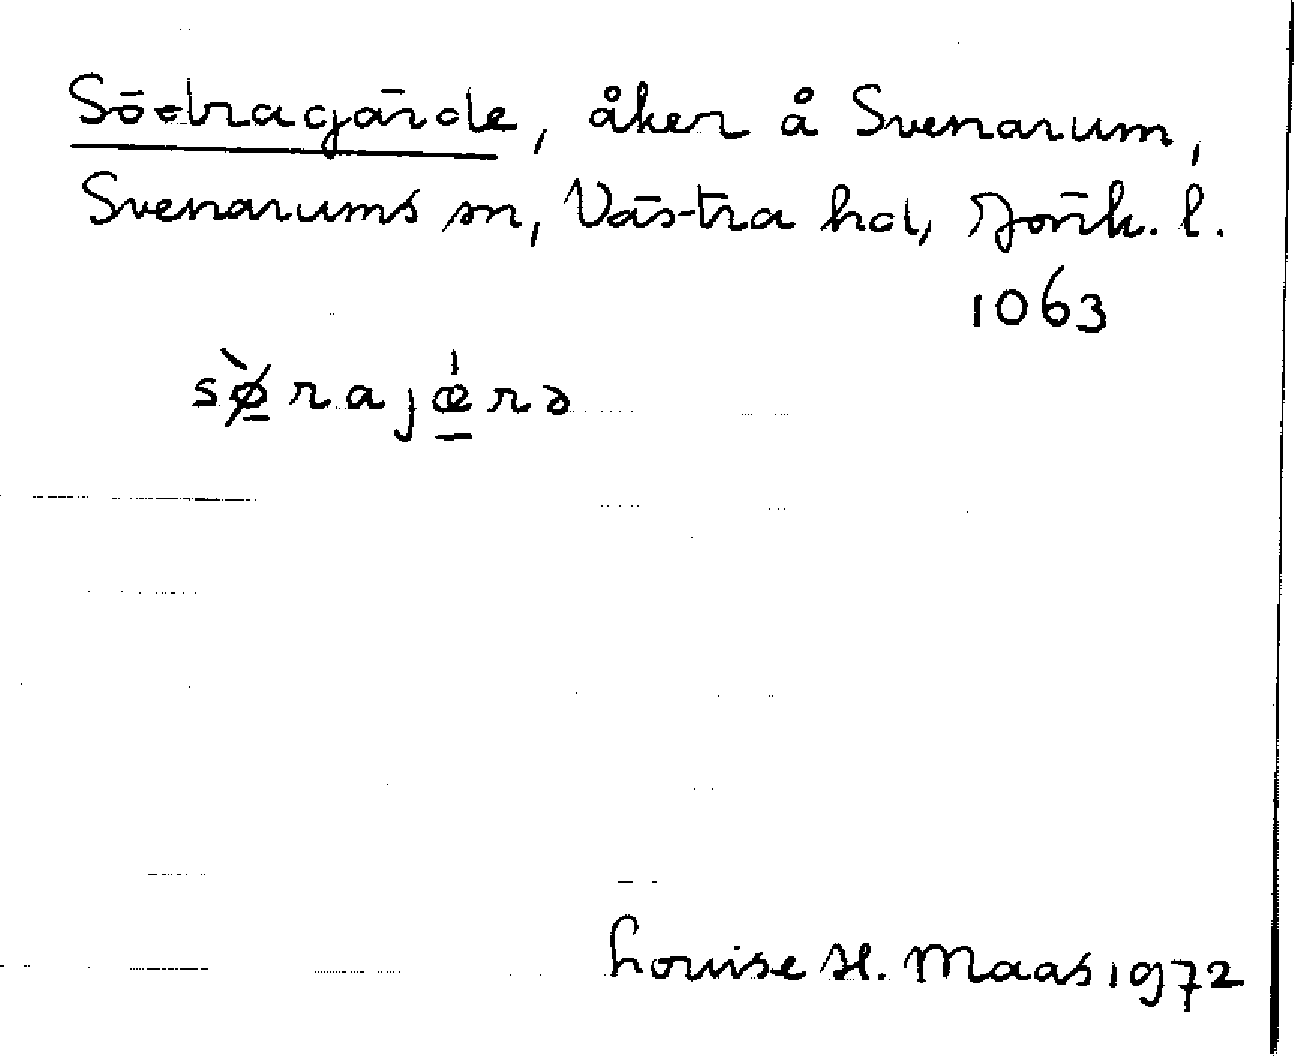 Södragärde, åker å Svenarum,
Svenarums sn, Västra hd, Jönk. l.
1063
sø̠̀rajǽ̠rə
Louise H. Maas 1972